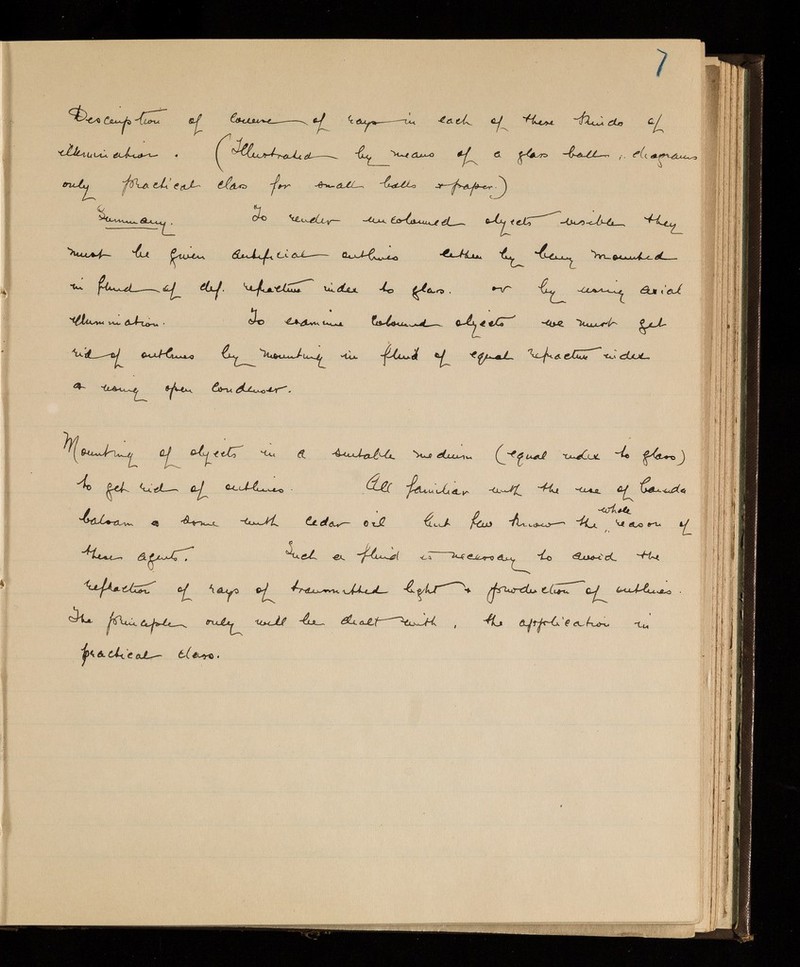 7
Description of course of rays in each of these kinds of
illumination. (Illustrated by means of a glass ball, diagrams
only practical class for small balls & paper.)
Summary. To render uncoloured objects visible they
must be given artificial outlines either by being mounted
in fluid of dif. refractive index to glass. or by using axial
illumination. To examine coloured objects we must get
rid of outlines by mounting in fluid of equal refractive index
& using open condenser.
Mounting of objects in a suitable medium (equal index to glass)
to get rid of outlines. All familiar with the use of Canada
balsam & some with cedar oil but few know the whole reason of
these agents. Such a fluid is necessary to avoid the
refraction of rays of transmitted light & production of outlines.
The principle only will be dealt with, the application in
practical class.